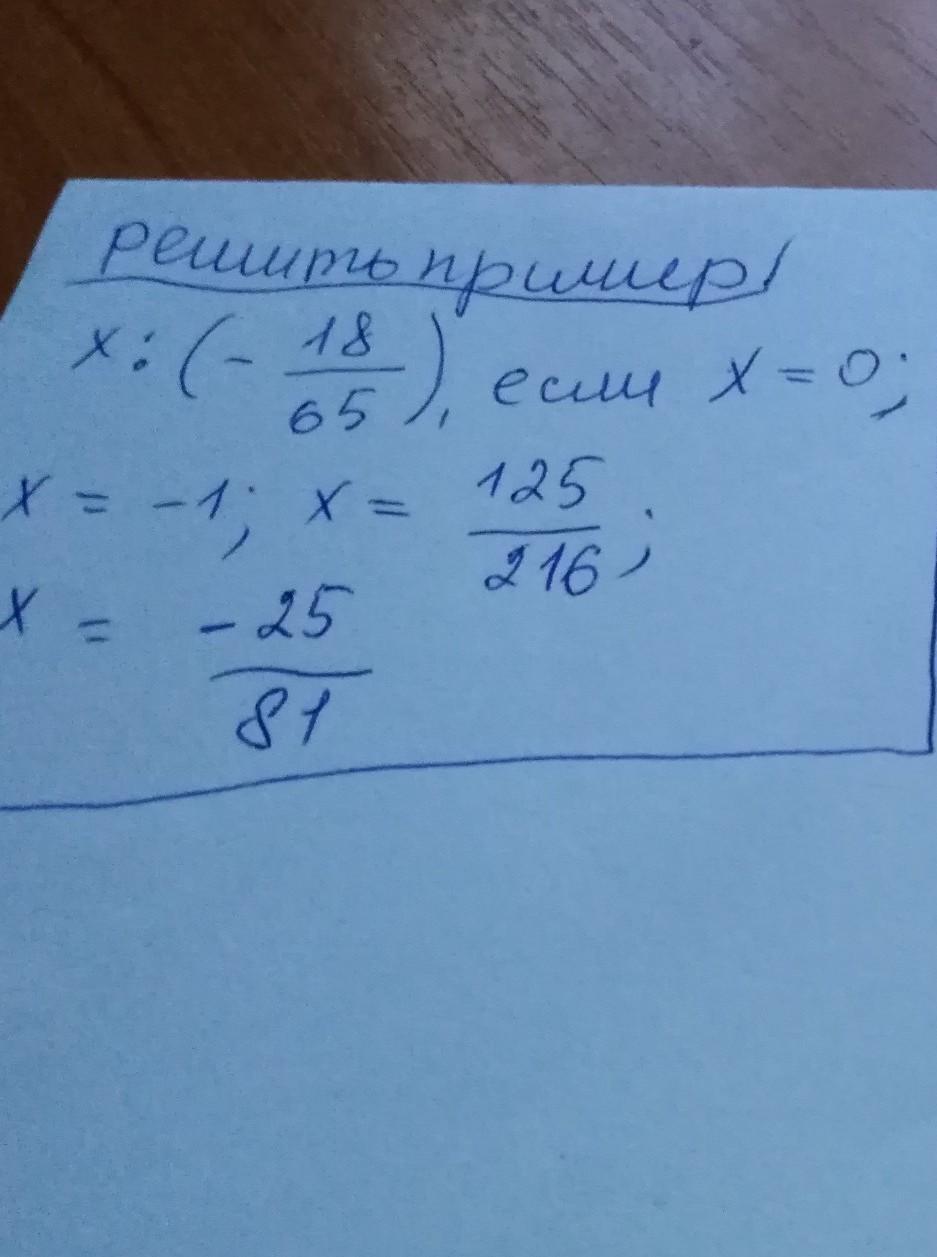 решить пример!
x : (- 18/65), если x = 0;
x = -1; x = 125/216;
x = -25/81